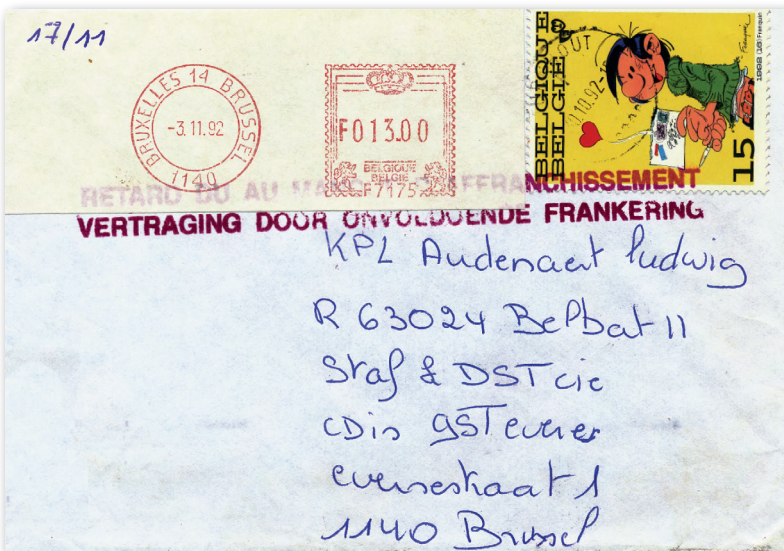 17/11
BRUXELLES 14 BRUSSEL
-3.11.92
1140
F013.00
BELGIQUE
BELGIE
F7175
BELGIQUE
BELGIE
15
1992 (16) Franquin
Franquin
10.92-
RETARD DU AU MANQUE D'AFFRANCHISSEMENT
VERTRAGING DOOR ONVOLDOENDE FRANKERING
KPL Audenaert Ludwig
R 63024 Belbat 11
Staf & DST cie
CDis QST everer
eversestraat 1
1140 Brussel